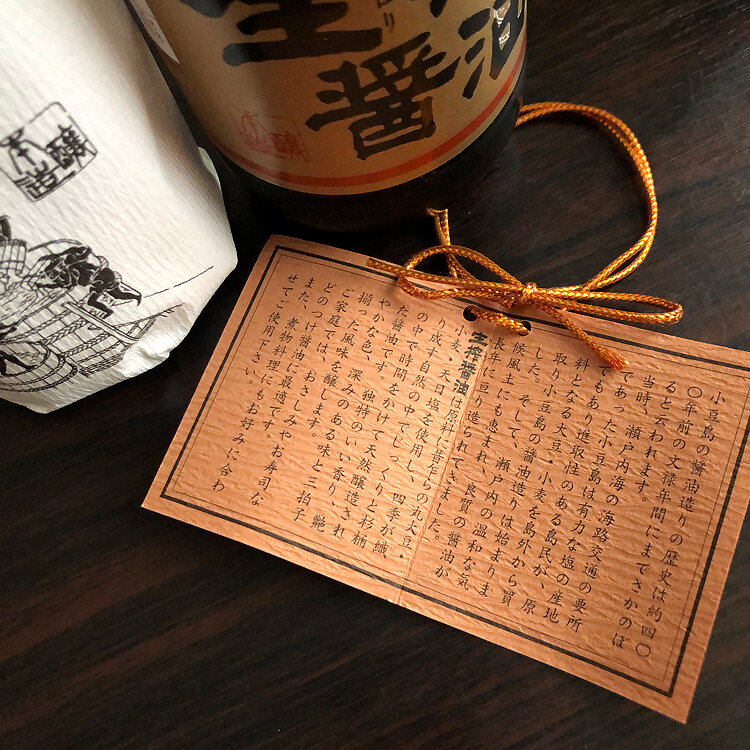 生
醤油
本醸造
本醸造
小豆島の醤油造りの歴史は約四〇
〇年前の文禄年間にまでさかのぼ
ると云われます。
当時、瀬戸内海の海路交通の要所
であった小豆島は有力な塩の産地
でもあり進取性のある島民が、原
料となる大豆・小麦を島外から買
取り小豆島の醤油造りは始まりま
した。そして、瀬戸内の温和な気
候風土にも恵まれ、良質の醤油が
長年に亘り造られてきました。
生搾醤油は原料に昔ながらの丸大豆・
小麦、天日塩を使用し、四季が織
り成す自然の中でじっくりと杉桶
の中で時間をかけて天然醸造され
た醤油です。独特のいい香り、艶
やかな色、深みのある味と三拍子
揃った風味を醸します。
ご家庭では、おさしみやお寿司な
どのつけ醤油に最適です。
また、煮物料理にもお好みに合わ
せてご使用下さい。